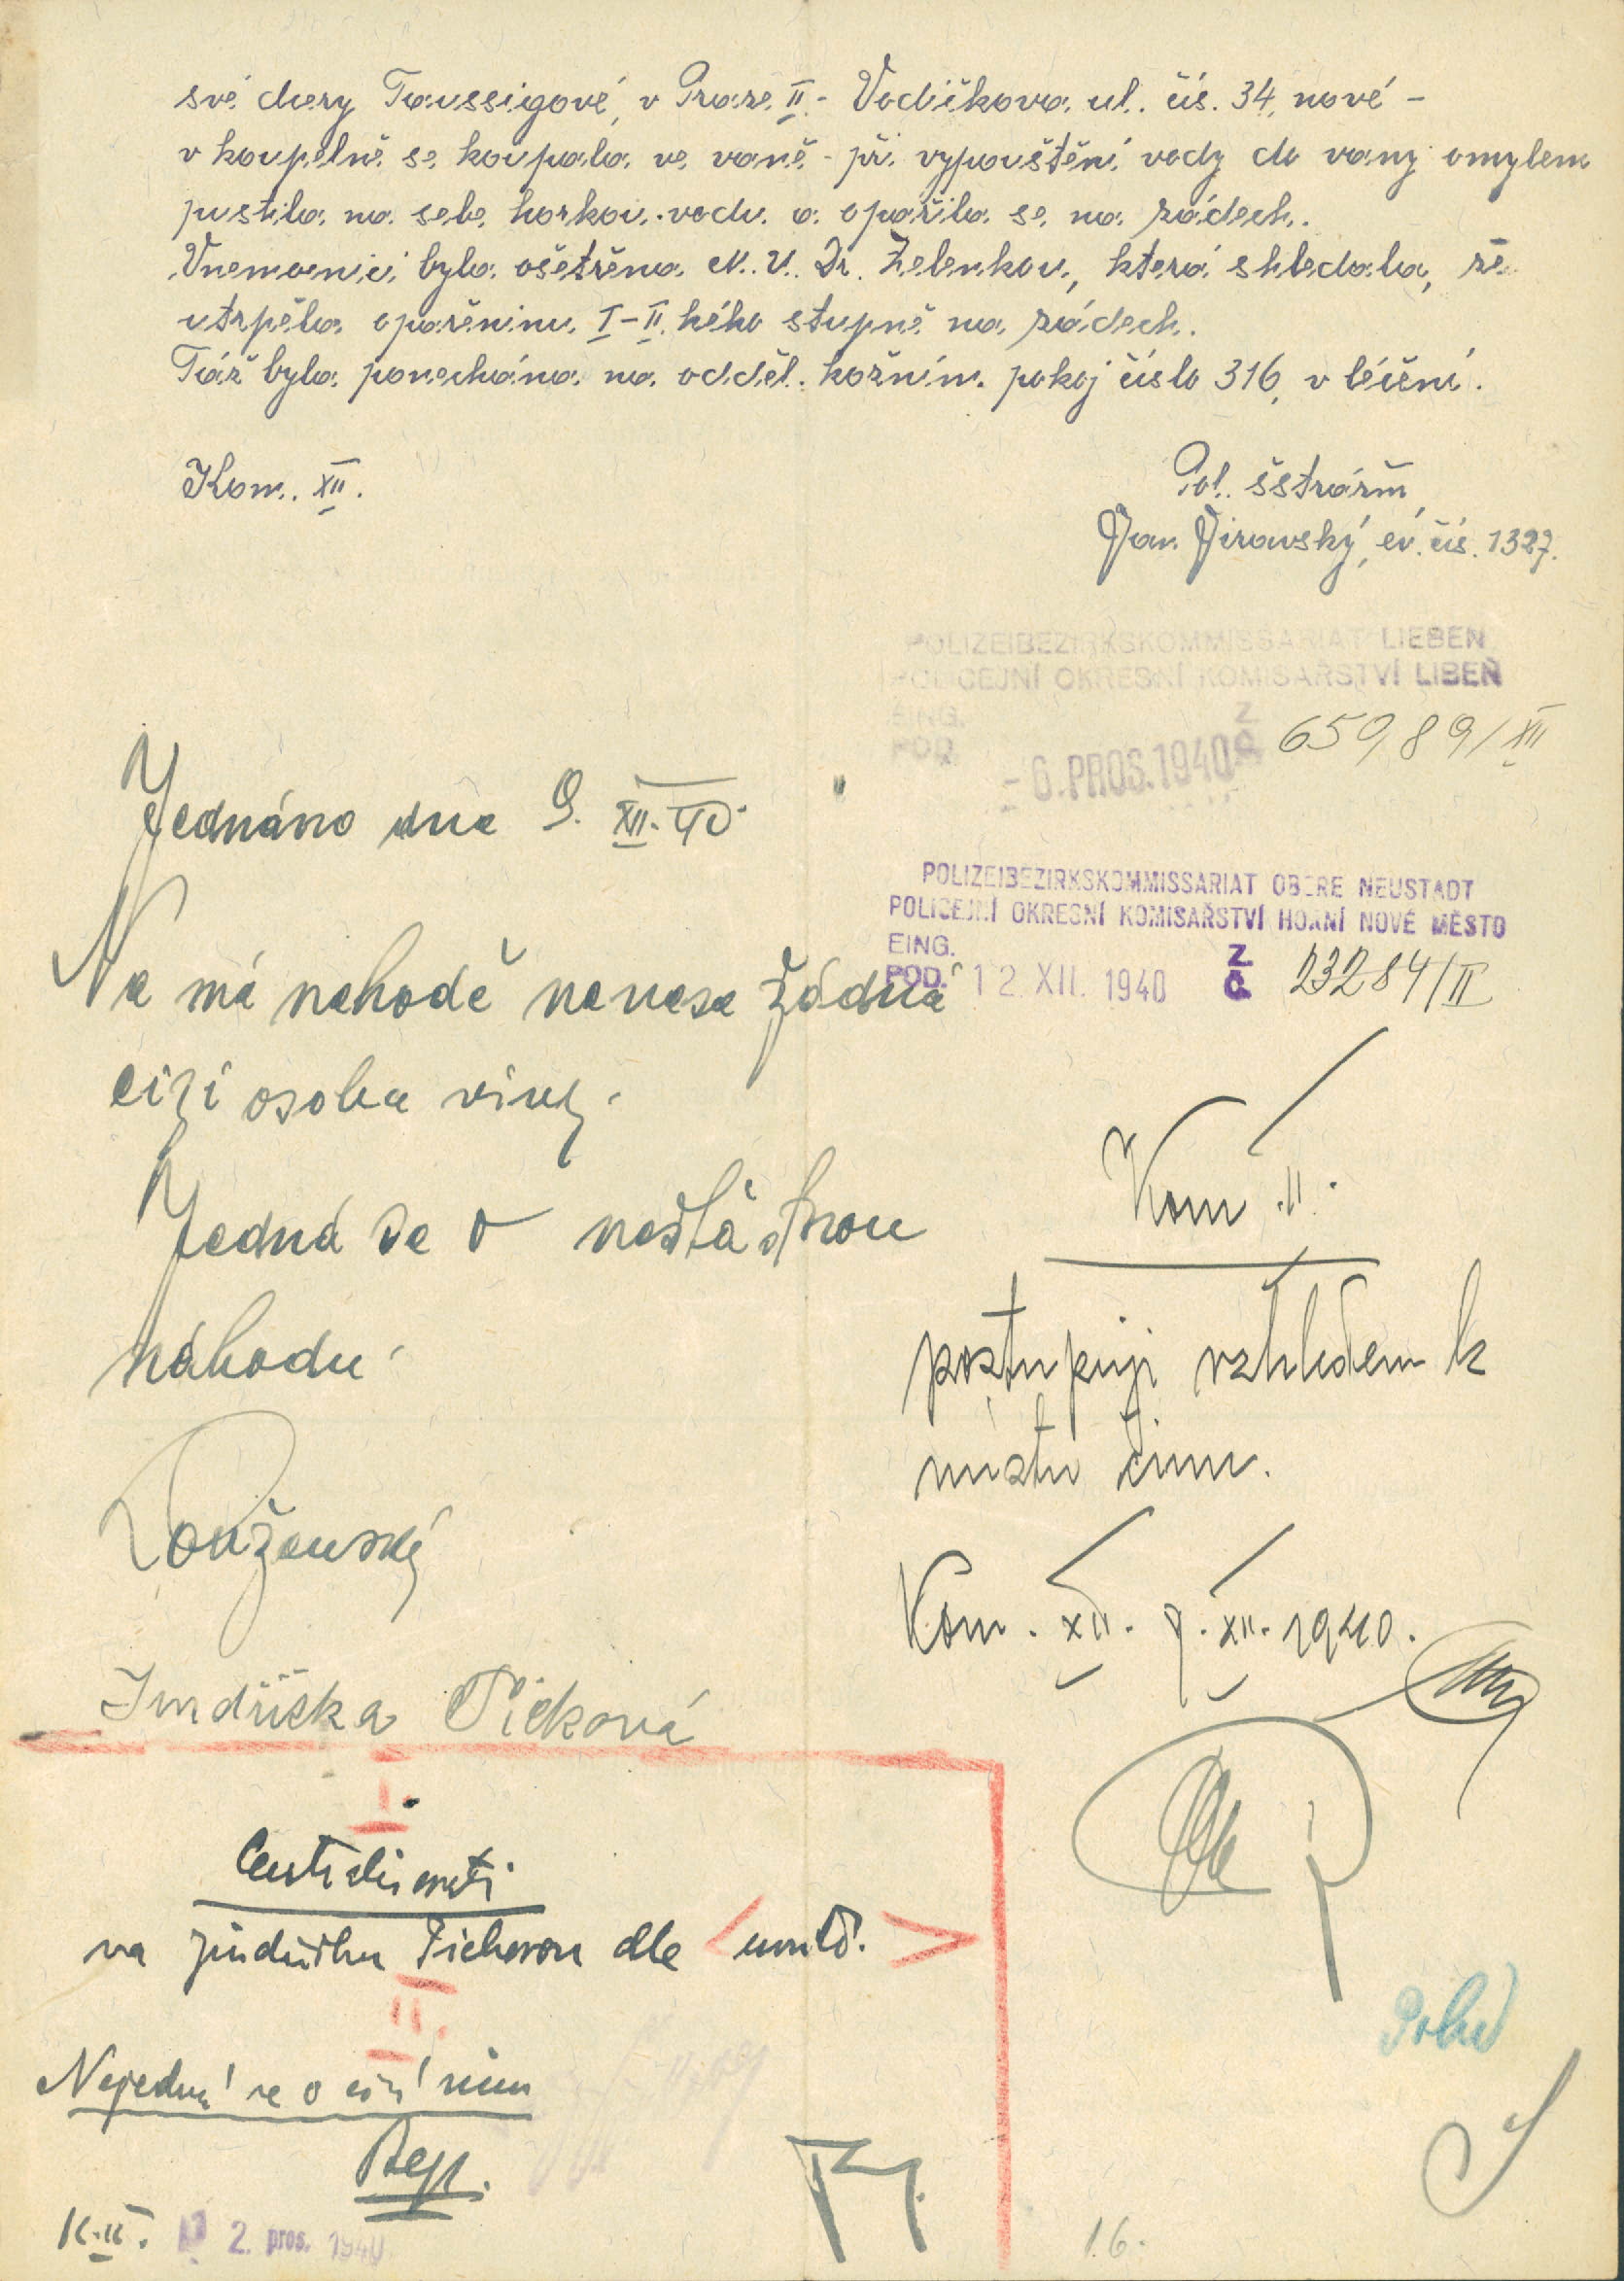 své dcery Taussigové, v Praze II.- Vodičkova ul. čís. 34, nové -
v koupelně se koupala ve vaně - při vypouštění vody do vany omylem
pustila na sebe horkou vodu a opařila se na zádech.
V nemocnici byla ošetřena M.U.Dr. Zelenkou, která shledala, že
utrpěla opařeninu I-II. hého stupně na zádech.
Táž byla ponechána na odděl. kožním pokoj číslo 316, v léčení.
Kom. XII.
Pol. šstrážm.
Jan Jirovský, ev. čís. 1327.
POLIZEIBEZIRKSKOMMISSARIAT LIEBEN
POLICEJNÍ OKRESNÍ KOMISAŘSTVÍ LIBEŇ
EING.
POD. - 6. PROS. 1940 Z Č. 65989/XII
Jednáno dne 9. XII. 40.
POLIZEIBEZIRKSKOMMISSARIAT OBERE NEUSTADT
POLICEJNÍ OKRESNÍ KOMISAŘSTVÍ HORNÍ NOVÉ MĚSTO
EING.
POD. 12. XII. 1940 Z Č. 23284/II
Na mé nehodě nenese žádná
cizí osoba viny.
Jedná se o nešťastnou
náhodu.
Kom. II.
postupuji vzhledem k
místu činu.
Kom. XII. 9. XII. 1940.
Jindřiška Picková
I.
na Jindřišku Pickovou dle
II.
Nejedná se o cizí vinu
Rep.
K. II. 12. pros. 1940
16.